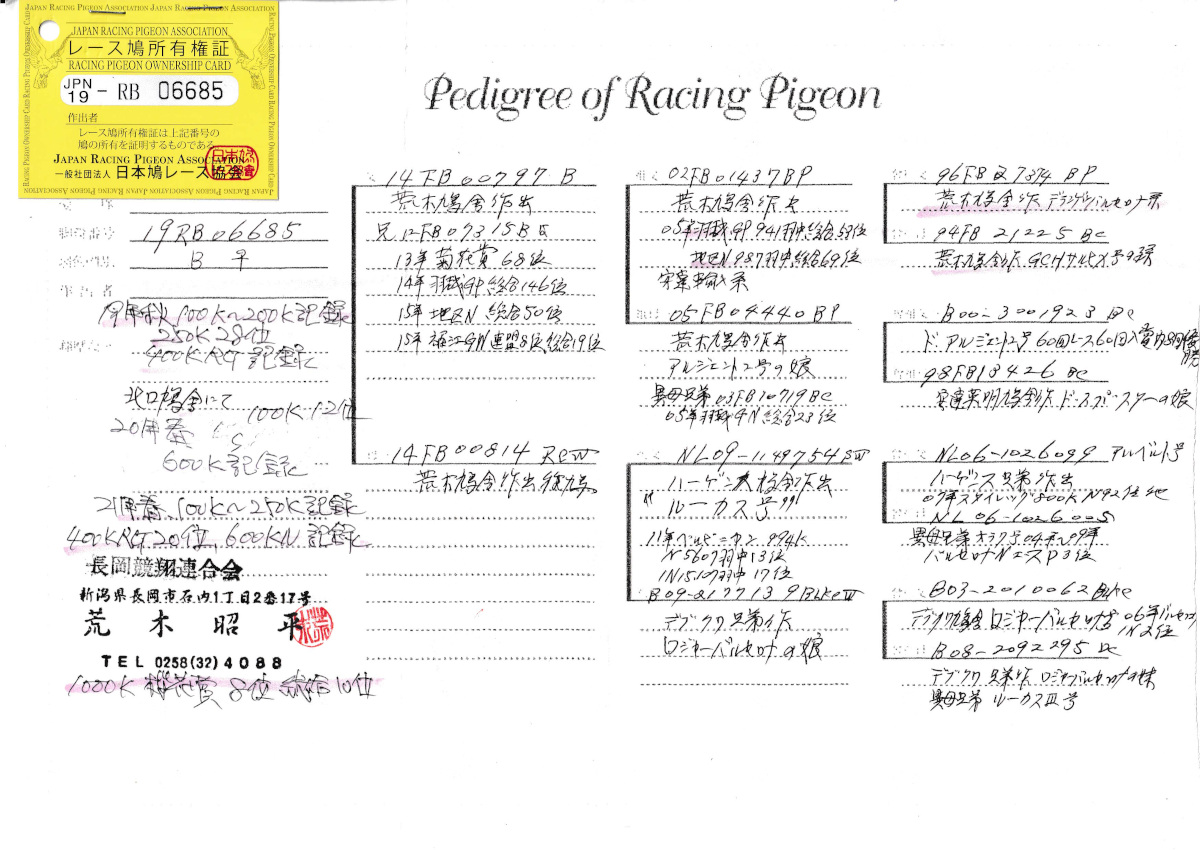 JAPAN RACING PIGEON ASSOCIATION
レース鳩所有権証
RACING PIGEON OWNERSHIP CARD
JPN 19 - RB 06685
作出者
レース鳩所有権証は上記番号の
鳩の所有を証明するものである。
JAPAN RACING PIGEON ASSOCIATION
一般社団法人 日本鳩レース協会
Pedigree of Racing Pigeon
19RB06685
B ♀
19年秋 100K~200K記録
250K 28位
400KRGT 記録
北口鳩舎にて
100K・12位
20年春
600K記録
21年春、100K~250K記録
400KRGT20位、600KN 記録
長岡競翔連合会
新潟県長岡市石内1丁目2番17号
荒木昭平
TEL 0258(32)4088
1000K 桜花賞 8位 総合10位
14FB00797 B
荒木鳩舎作出
兄 12FB07315B
13年菊花賞 68位
14年羽越GP総合146位
15年地区N 総合50位
15年 福江GN連盟8位総合19位
14FB00814
荒木鳩舎作出
02FB01437BP
荒木鳩舎作出
05年羽越GP 941羽中総合53位
地区N 987羽中総合69位
安達輸入系
05FB04440BP
荒木鳩舎作出
アルジェント2号の娘
異母兄弟 03FB10719BC
05年羽越GN総合23位
NL09-1149754
ハーゲンス鳩舎作出
"ルーカス号"
N5607羽中13位
IN15107羽中17位
B09-2177139
デブクワ兄弟作
ロジャーバルセロナの娘
96FB 27374 BP
荒木鳩舎作
94FB 21225 BC
荒木鳩舎作
B00-3001923 BC
ド・アルジェント2号 60回レース60回入賞内8回優勝
98FB18426 BC
安達英明鳩舎作
NL06-1026099 アルベルト号
ハーゲンス兄弟作出
NL06-1026005
バルセロナNエースP3位
B03-2010062
デブクワ鳩舎 ロジャーバルセロナ号 06年バルセロナ
IN2位
B08-2092295
デブクワ兄弟作 ロジャーバルセロナの妹
異母兄弟 ルーカスIII号